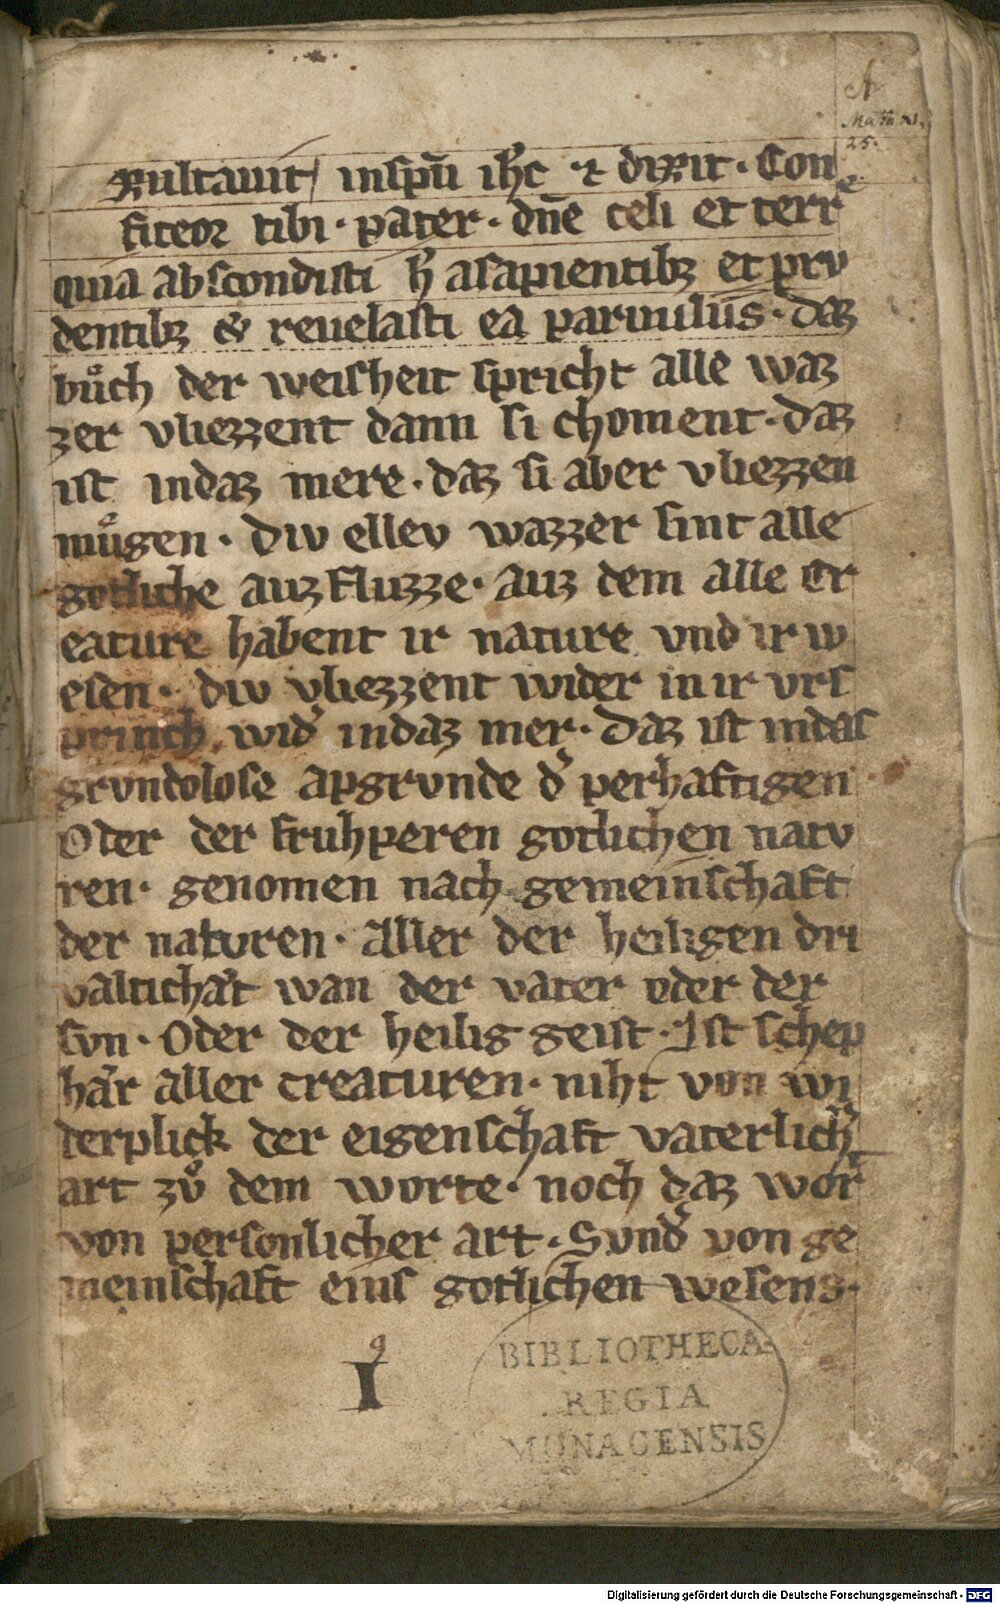 A
Math XI.
25.
Exultauit inspū ih̄c ⁊ dixit · Con
fiteor tibi · pater · dn̄e celi et terrᵉ
quia abscondisti h̄ asapientibꝫ et pru
dentibꝫ & reuelasti ea paruulus · daz
buͦch der weisheit spricht alle waz
zer vliezzent dann si choment · daz
ist indaz mere · daz si aber vliezzen
muͤgen · Div ellev wazzer sint alle
gotliche auzfluzze · auz dem alle cr
eature habent ir nature vnd ir w
esen · div vliezzent wider in ir vrs
princh wid̓ indaz mer · Daz ist indas
grvndolose apgrvnde d̓ perhaftigen
Oder der fruhperen gotlichen natv
ren · genomen nach gemeinschaft
der natvren · aller der heiligen dri
valtichaͤt wan der vater oder der
svn · Oder der heilig geist · Ist schep
haͤr aller creaturen · niht von wi
derplick der eigenschaft vaterlich̓
art zuͦ dem worte · noch daz wort
von personlicher art · Svnd̓ von ge
meinschaft eins gotlichen wesens ·
I⁹
BIBLIOTHECA
REGIA
MONACENSIS
Digitalisierung gefördert durch die Deutsche Forschungsgemeinschaft - DFG